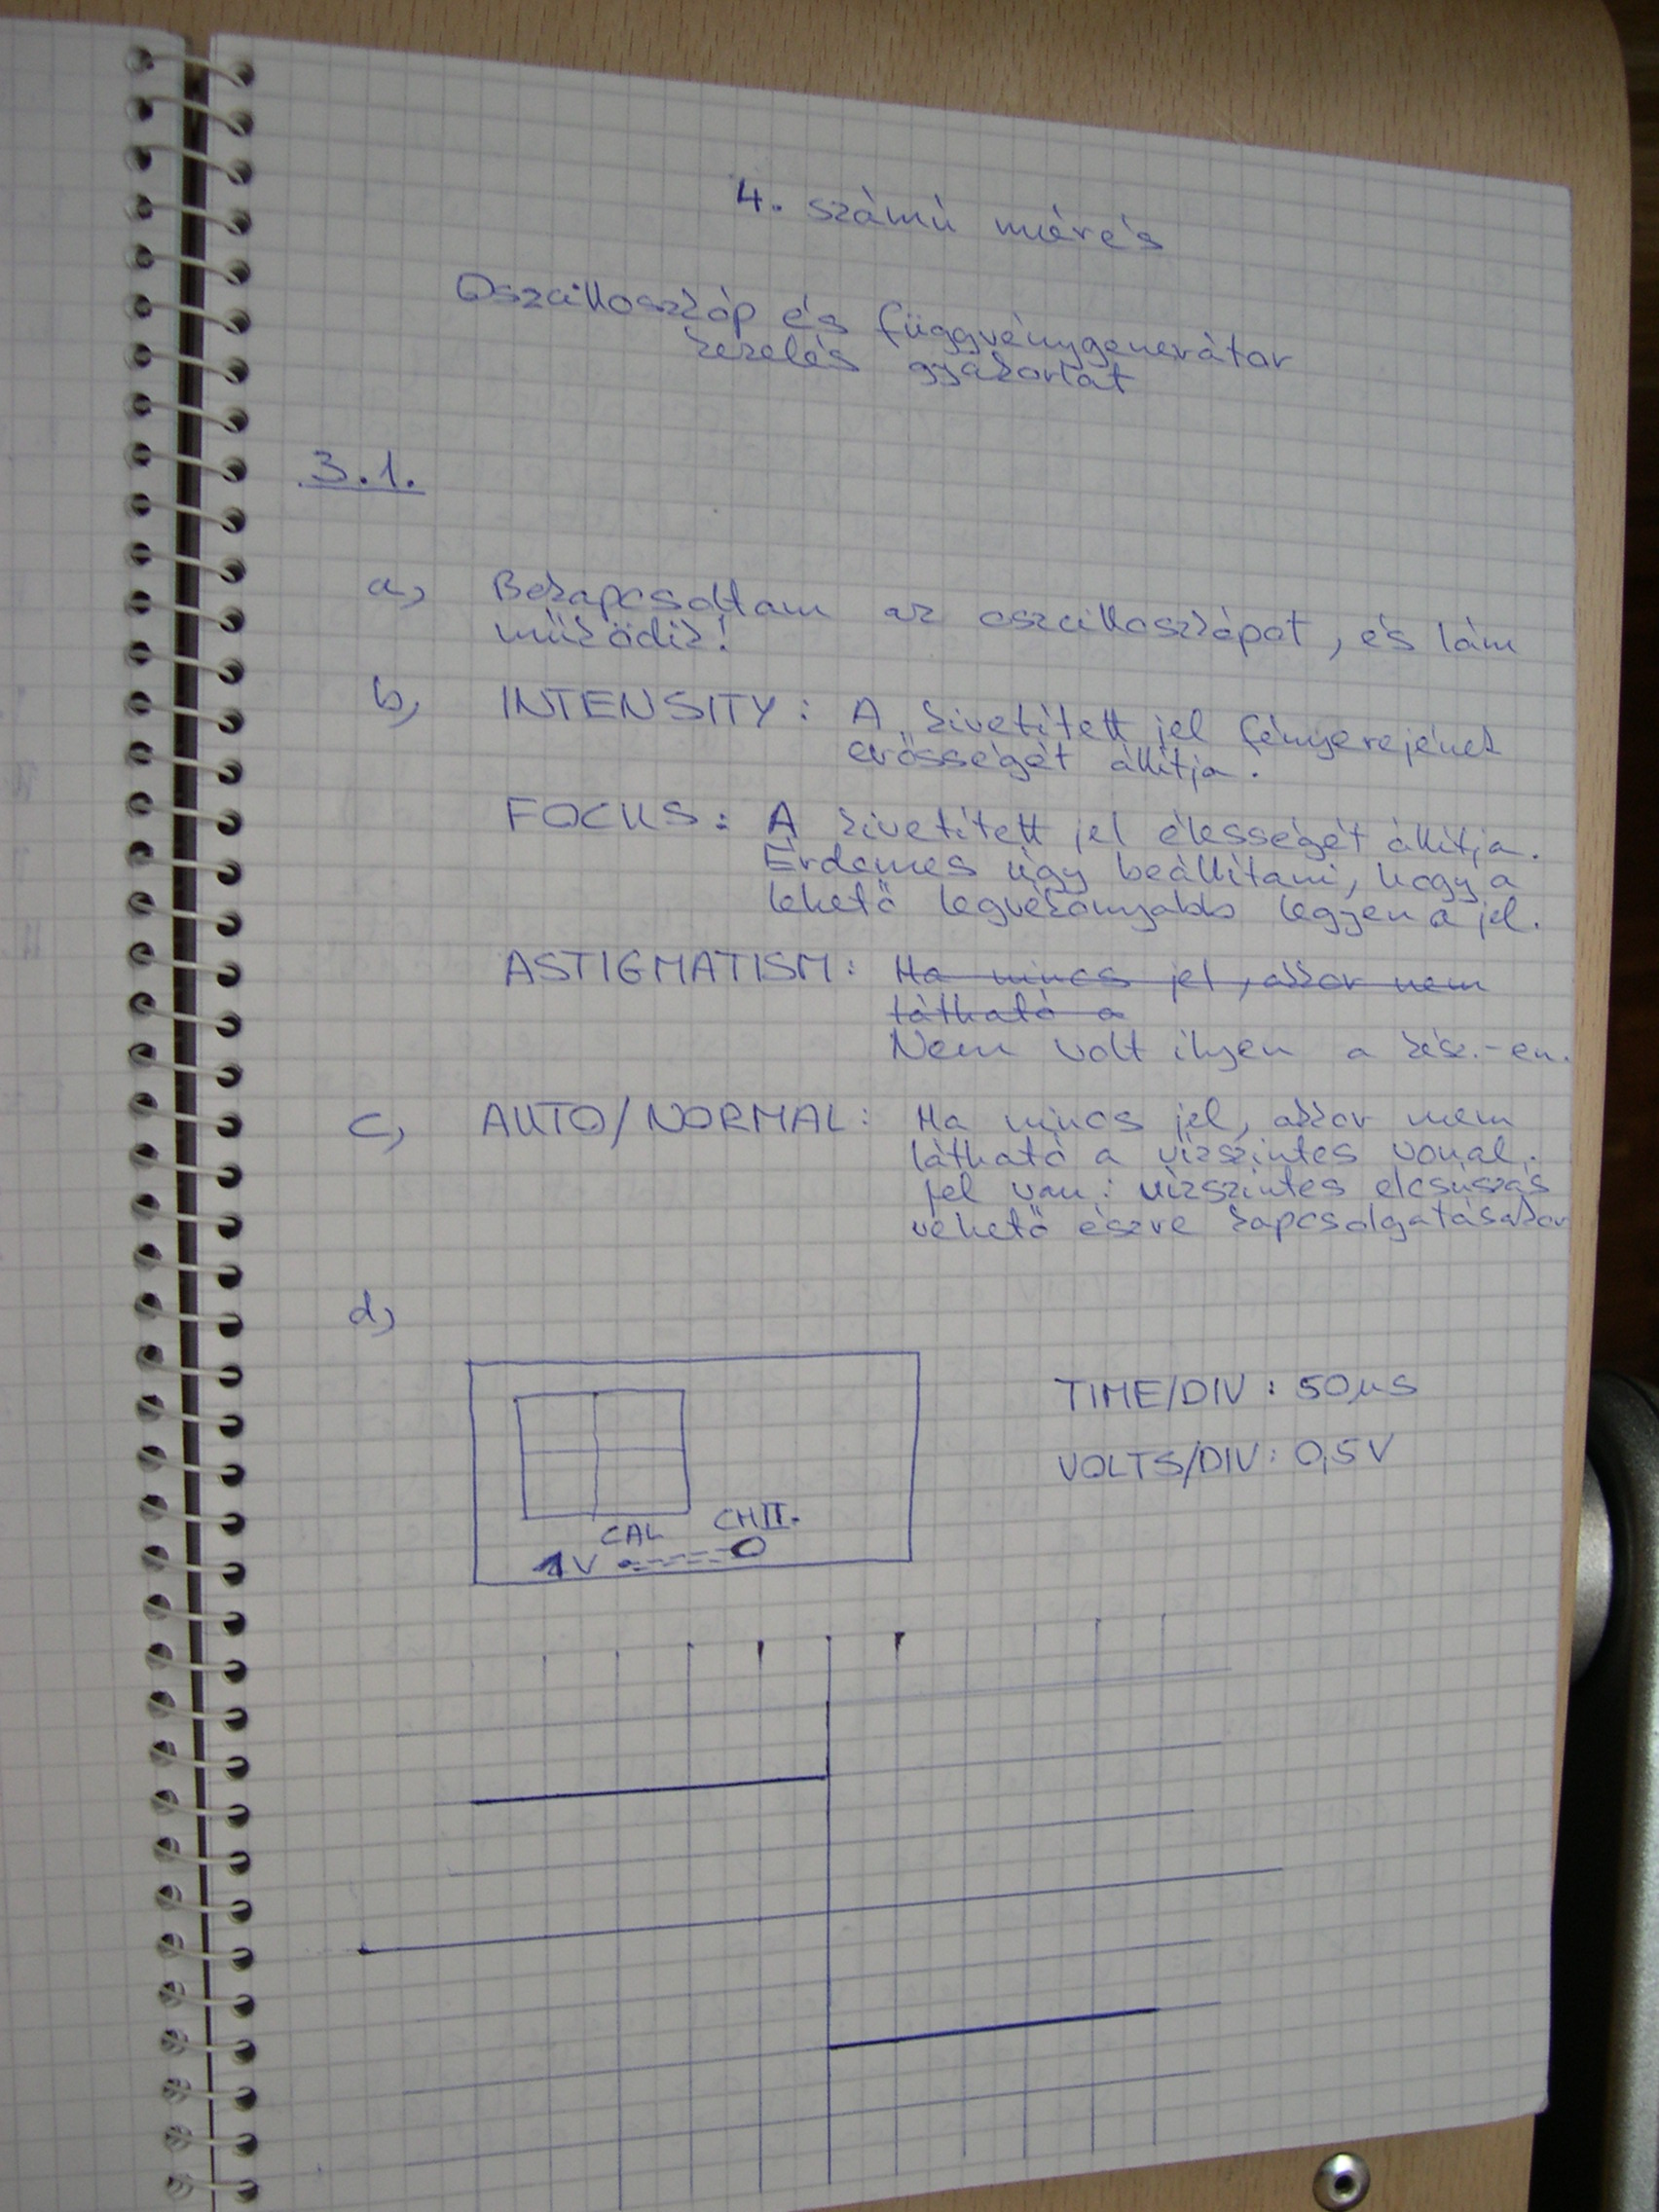 4. számú mérés
Oszcilloszkóp és függvénygenerátor
kezelés gyakorlat
3.1.
a, Bekapcsoltam az oszcilloszkópot, és lám
működik!
b, INTENSITY: A kivetített jel fényerejének
erősségét állítja.
FOCUS: A kivetített jel élességét állítja.
Érdemes úgy beállítani, hogy a
lehető legvékonyabb legyen a jel.
ASTIGMATISM: Ha nincs jel, akkor nem
látható a
Nem volt ilyen a kész.-en.
c, AUTO/NORMAL: Ha nincs jel, akkor nem
látható a vízszintes vonal.
jel van: vízszintes elcsúszás
vehető észre kapcsolgatásakor
d,
TIME/DIV: 50µs
VOLTS/DIV: 0,5V
CAL CHII.
1V